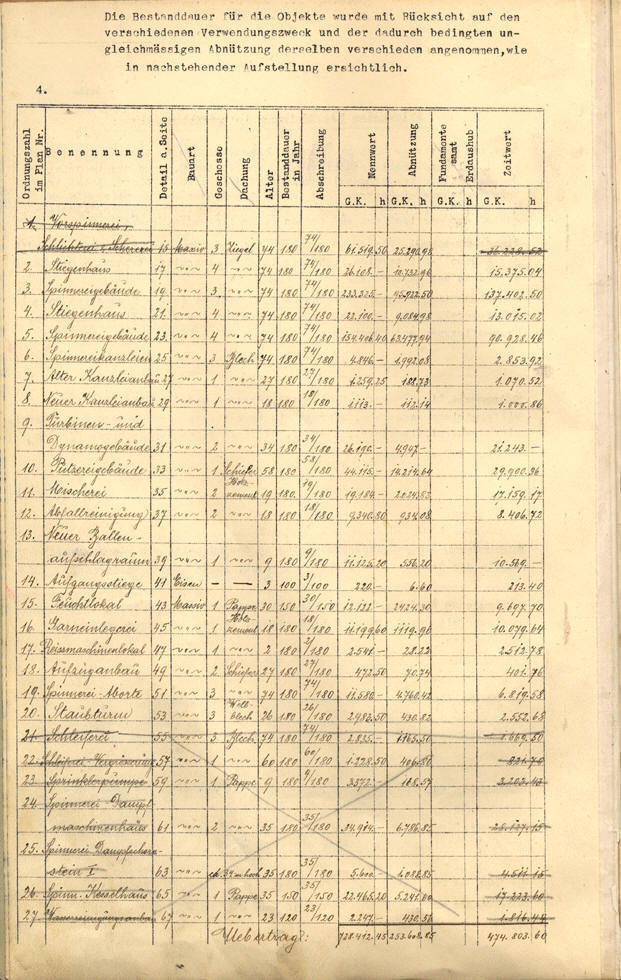 Die Bestanddauer für die Objekte wurde mit Rücksicht auf den
verschiedenen Verwendungszweck und der dadurch bedingten un-
gleichmässigen Abnützung derselben verschieden angenommen, wie
in nachstehender Aufstellung ersichtlich.
4.
Ordnungszahl im Plan Nr. Benennung Detail a. Seite Bauart Geschosse Dachung Alter Bestanddauer in Jahr Abschreibung Nennwert Abnützung Fundamente samt Erdaushub Zeitwert
G.K. h G.K. h G.K. h G.K. h
1. Vorspinnerei,
Schlichterei u. Schererei 15 Massiv 3 Ziegel 74 180 74/180 61.519.50 25.290.98 36.228.52
2. Stiegenhaus 17 " 4 " 74 180 74/180 26.108.- 10.732.96 15.375.04
3. Spinnereigebäude 19 " 3 " 74 180 74/180 233.325.- 95.922.50 137.402.50
4. Stiegenhaus 21 " 4 " 74 180 74/180 22.100.- 9.084.98 13.015.02
5. Spinnereigebäude 23 " 4 " 74 180 74/180 154.406.40 63.477.94 90.928.46
6. Spinnereikanzleien 25 " 3 Blech 74 180 74/180 4.846.- 1.992.08 2.853.92
7. Alter Kanzleianbau 27 " 1 " 27 180 27/180 1.259.25 188.73 1.070.52
8. Neuer Kanzleianbau 29 " 1 " 18 180 18/180 1.113.- 112.14 1.000.86
9. Turbinen- und
Dynamogebäude 31 " 2 " 34 180 34/180 26.190.- 4.947.- 21.243.-
10. Putzereigebäude 33 " 1 Schiefer 58 180 58/180 44.115.- 14.214.64 29.900.36
11. Mischerei 35 " 2 Holzzement 19 180 19/180 19.184.- 2.024.83 17.159.17
12. Abfallreinigung 37 " 2 " 18 180 18/180 9.340.80 934.08 8.406.72
13. Neuer Ballen-
aufschlagraum 39 " 1 " 9 180 9/180 11.125.20 556.20 10.569.-
14. Aufgangsstiege 41 Eisen — — 3 100 3/100 220.- 6.60 213.40
15. Feuchtlokal 43 Massiv 1 Pappe 30 150 30/150 12.122.- 2424.30 9.697.70
16. Garneinlegerei 45 " 1 Holzzement 18 180 18/180 11.199.60 1119.96 10.079.64
17. Reissmaschinenlokal 47 " 1 " 2 180 2/180 2.541.- 28.22 2.512.78
18. Aufzuganbau 49 " 2 Schiefer 27 180 27/180 472.50 70.74 401.76
19. Spinnerei-Aborte 51 " 3 " 74 180 74/180 11.580.- 4.760.42 6.819.58
20. Staubturm 53 " 3 Wellblech 26 180 26/180 2982.50 430.82 2.552.68
21. Schleiferei 55 " 3 Blech 74 180 74/180 2.835.- 1165.50 1.669.50
22. Schleiferei Vergrösserung 57 " 1 " 60 180 60/180 1.228.50 406.80 821.70
23. Sprinklerpumpe 59 " 1 Pappe 9 180 9/180 3372.- 168.57 3.203.43
24. Spinnerei Dampf-
maschinenhaus 61 " 2 " 35 180 35/180 34.914.- 6.786.85 28.127.15
25. Spinnerei Dampfschorn-
stein I 63 " 35 180 35/180 5.600.- 1.088.85 4.511.15
26. Spinn. Kesselhaus 65 " 1 Pappe 35 150 35/150 22.465.20 5.241.60 17.223.60
27. Wasserreinigungsanbau 67 " 1 " 23 120 23/120 2.247.- 430.56 1.816.44
Uebertrag: 728.412.45 253.608.85 474.803.60